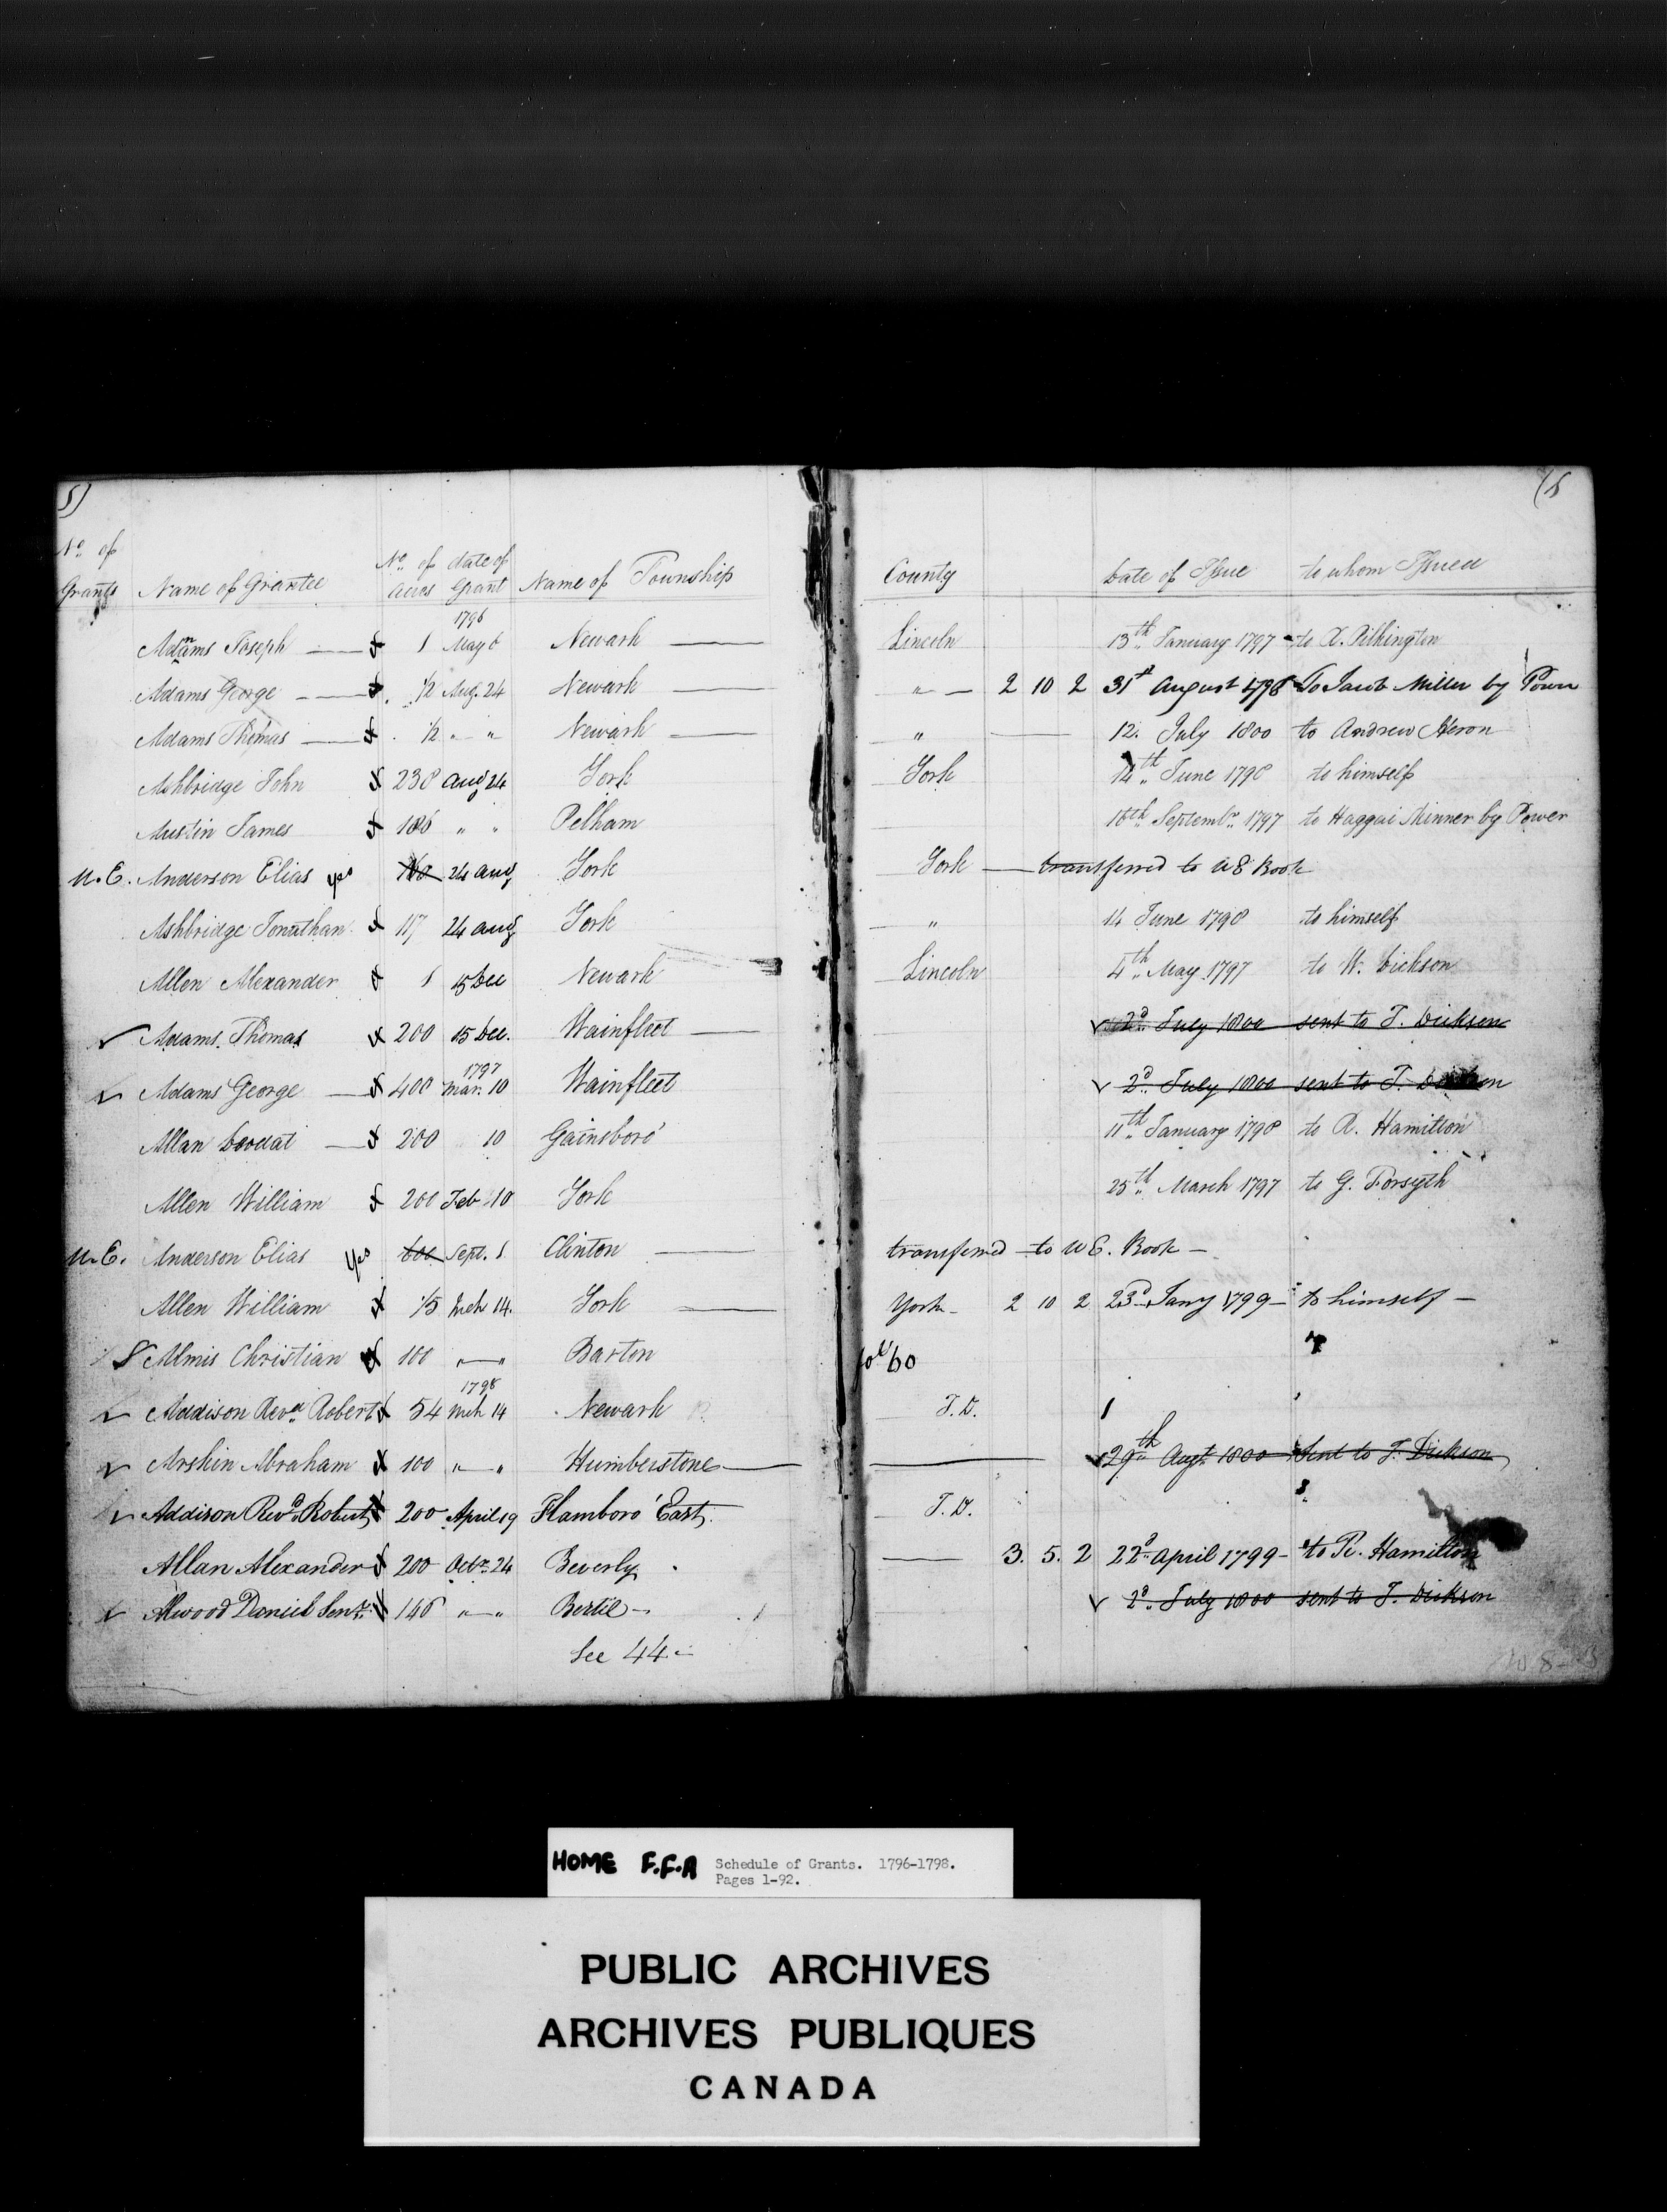 5)
(5
No. of
Grants
Name of Grantee
No. of Acres
date of Grant
Name of Township
County
Date of Issue
to whom Issued
1796
Adams Joseph 1 May 6 Newark Lincoln 13th January 1797 to R. Pilkington
Adams George 1/2 Aug. 24 Newark " 2 10 2 31st August 1798 To Jacob Miller by Power
Adams Thomas 1/2 " " Newark " 12. July 1800 to Andrew Heron
Ashbridge John 238 Aug 24 York York 14th June 1798 to himself
Austin James 186 " " Pelham 16th Septembr. 1797 to Haggai Skinner by Power
U.E. Anderson Elias yes 24 Aug York York transferred to UE Book
Ashbridge Jonathan 117 24 Aug York " 14 June 1798 to himself
Allen Alexander 1 15 Dec Newark Lincoln 4th May 1797 to W. Dickson
Adams Thomas 200 15 Dec. Wainfleet 2d July 1800 sent to T. Dickson
1797
Adams George 400 Mar. 10 Wainfleet 2d July 1800 sent to T. Dickson
Allan 200 10 Gainsboro' 11th January 1798 to R. Hamilton
Allen William 200 Feb 10 York 25th March 1797 to G. Forsyth
U.E. Anderson Elias yes 600 Sept. 1 Clinton transferred to UE. Book
Allen William 1/5 Mch 14. York York 2 10 2 23d Jany 1799 to himself
Almis Christian 100 " " Barton fol 60
1798
Addison Revd. Robert 54 Mch 14 Newark T.D.
Arskin Abraham 100 " " Humberstone 29th Augt. 1800 Sent to T. Dickson
Addison Revd. Robert 200 April 19 Flamboro' East T.D.
Allan Alexander 200 Octr. 24 Beverly 3. 5. 2 22d April 1799 to R. Hamilton
Atwood Daniel Senr. 146 " " Bertie 2d July 1800 sent to T. Dickson
See 44
HOME F.F.A Schedule of Grants. 1796-1798.
Pages 1-92.
PUBLIC ARCHIVES
ARCHIVES PUBLIQUES
CANADA